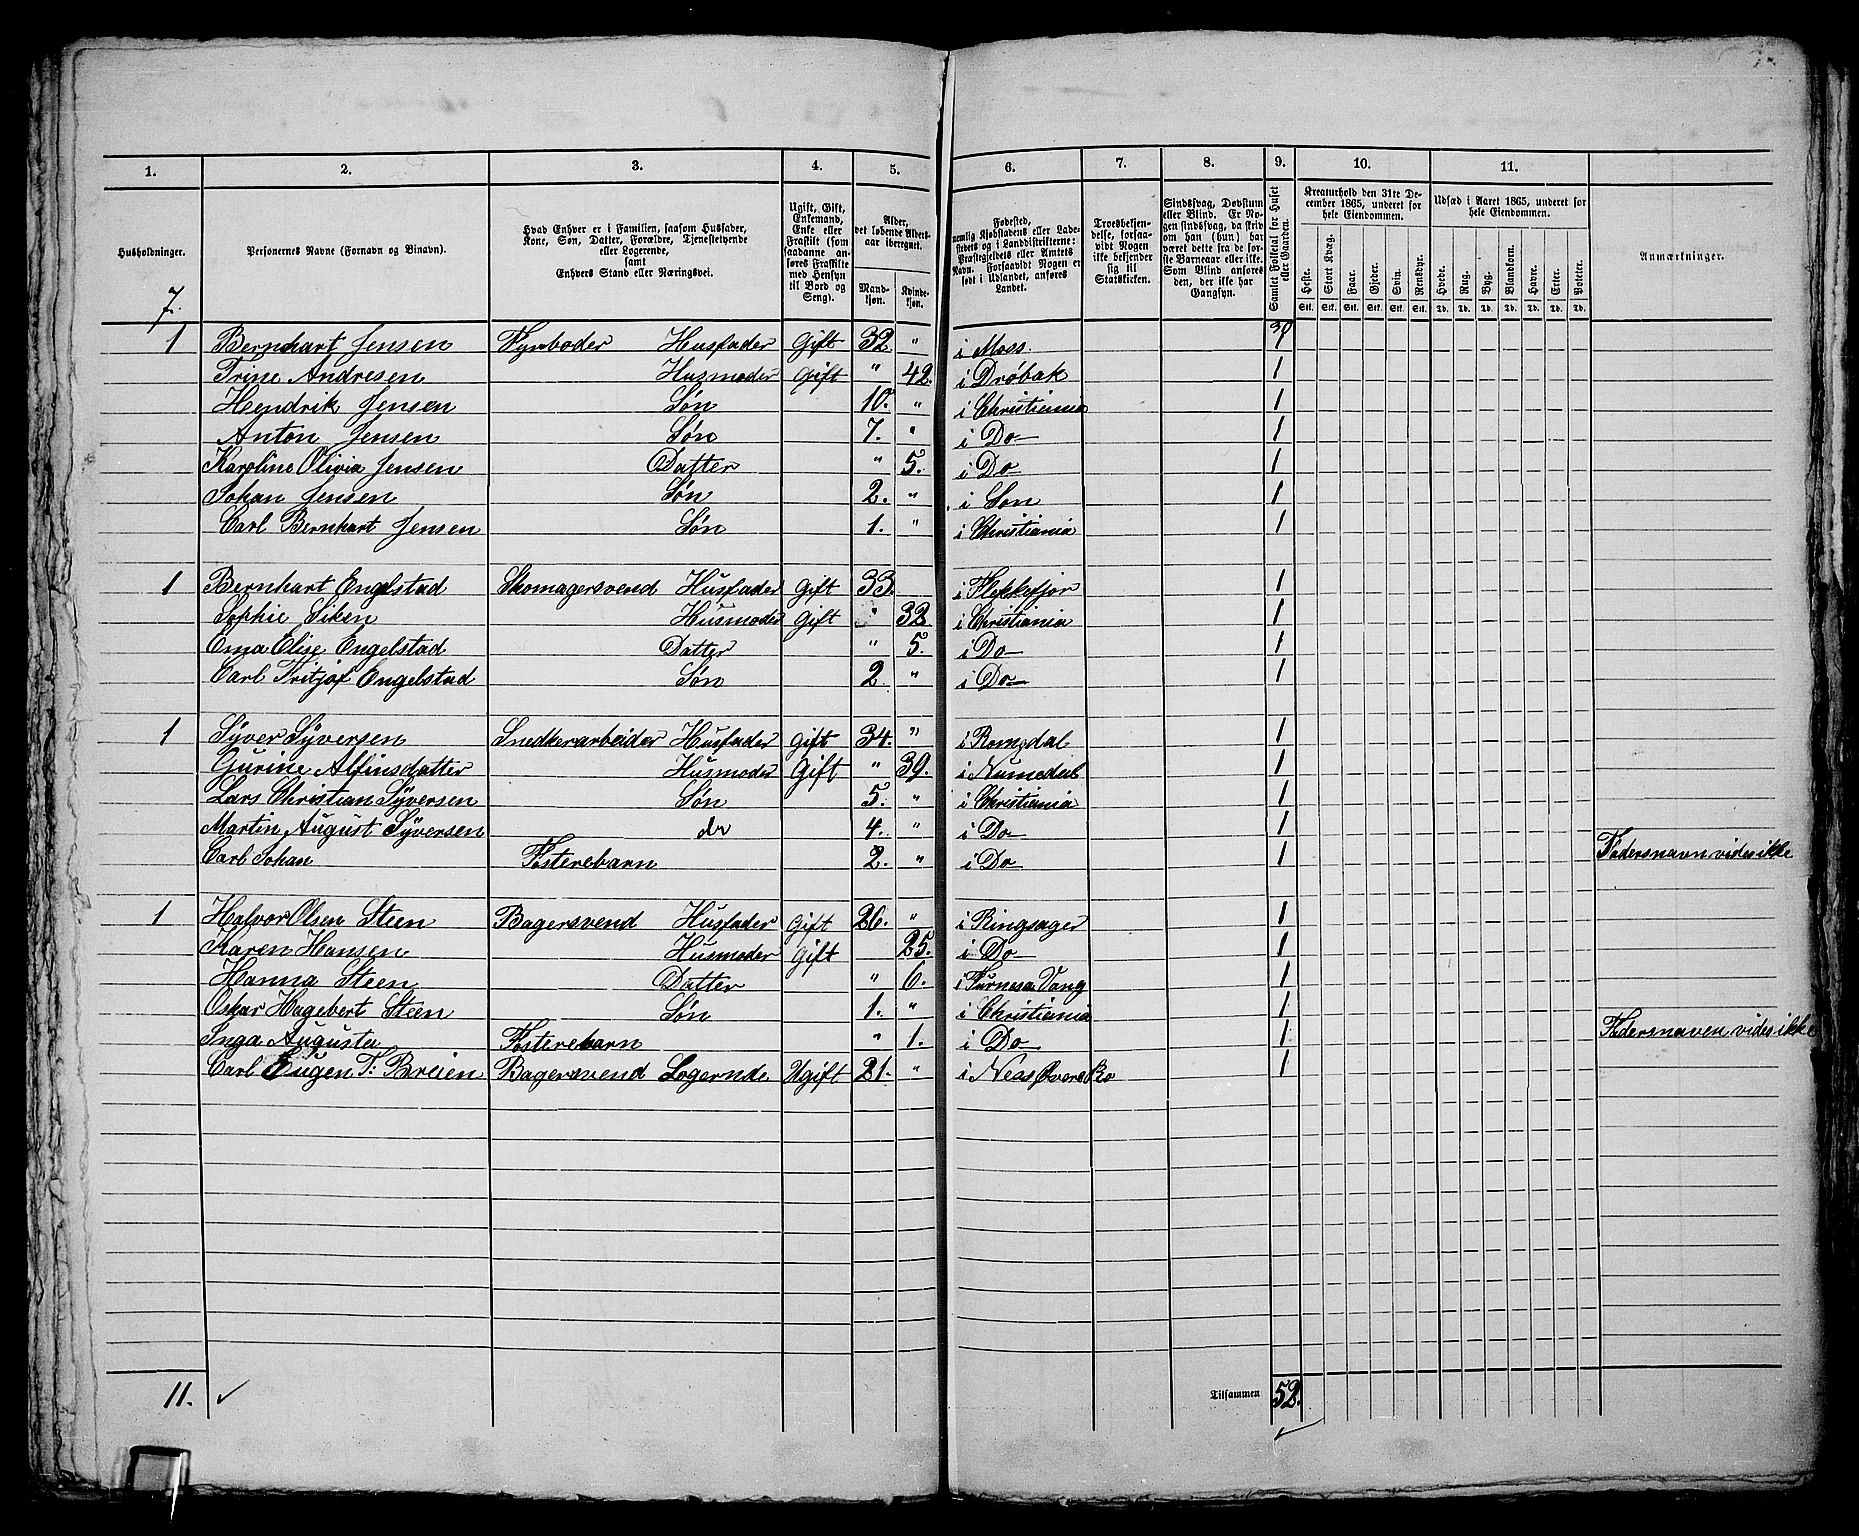 1. 2. 3. 4. 5. 6. 7. 8. 9. 10. 11.
Husholdninger.
Personernes Navne (Fornavn og Binavn).
Hvad Enhver er i Familien, saasom Husfader,
Kone, Søn, Datter, Forældre, Tjenestetyende
eller Logerende,
samt
Enhvers Stand eller Næringsvei.
Ugift, Gift,
Enkemand,
Enke eller
Fraskilt (som
saadanne an-
føres Fraskilte
med Hensyn
til Bord og
Seng).
Alder,
det løbende Alders-
aar iberegnet.
Mand-
kjøn.
Kvinde-
kjøn.
Fødested,
nemlig Kjøbstadens eller Lade-
stedets og i Landdistrikterne:
Præstegjeldets eller Amtets
Navn. Forsaavidt Nogen er
født i Udlandet, anføres
Landet.
Troesbekjen-
delse, forsaa-
vidt Nogen
ikke bekjender
sig til
Statskirken.
Sindssvag, Døvstum
eller Blind. Er No-
gen sindssvag, da skriv
om han (hun) har
været dette fra de for-
ste Barneaar eller ikke.
Som Blind anføres
den, der ikke har
Gangsyn.
Samlet Folketal for Huset
eller Gaarden.
Kreaturhold den 31te De-
cember 1865, underet for
hele Eiendommen.
Heste. Stort Kvæg. Faar. Gjeder. Svin. Rensdyr.
Stk. Stk. Stk. Stk. Stk. Stk.
Udsæd i Aaret 1865, underet for
hele Eiendommen.
Hvede. Rug. Byg. Blandkorn. Havre. Erter. Poteter.
Td. Td. Td. Td. Td. Td. Td.
Anmærkninger.
7. 30
1 Bernhart Jensen Fyrbøder Husfader Gift 32 " i Moss. 1
Trine Andresen Husmoder Gift " 42. i Drøbak 1
Hendrik Jensen Søn 10. " i Christiania 1
Anton Jensen Søn 7. " i Do 1
Karoline Olivia Jensen Datter " 5. i Do 1
Johan Jensen Søn 2. " i Son 1
Carl Bernhart Jensen Søn 1. " i Christiania 1
1 Bernhart Engelstad Skomagersvend Husfader Gift 33. i Flekkefjor 1
Sophie Siken Husmoder Gift " 32 i Christiania 1
Ema Elise Engelstad Datter " 5. i Do 1
Carl Fritjof Engelstad Søn 2. " i Do 1
1 Syver Syversen Snedkerarbeider Husfader Gift 34. " i Romsdal 1
Gurine Alfinsdatter Husmoder Gift " 39. i Numedal 1
Lars Christian Syversen Søn 5. " i Christiania 1
Martin August Syversen do 4. " i Do 1
Carl Johan Fosterebarn 2. " i Do 1 Fadersnavn vides ikke
1 Halvor Olsen Steen Bagersvend Husfader Gift 26. " i Ringsager 1
Karen Hansen Husmoder Gift 25. i Do 1
Hanna Steen Datter " 6. i Furnesa Vang 1
Oskar Hagebert Steen Søn 1. " i Christiania 1
Inga Augusta Fosterebarn " 1. i Do 1 Fadersnaven vides ikke
Carl Eugen T: Breien Bagersvend Logernde Ugift 21. " i 1
11. Tilsammen 52.